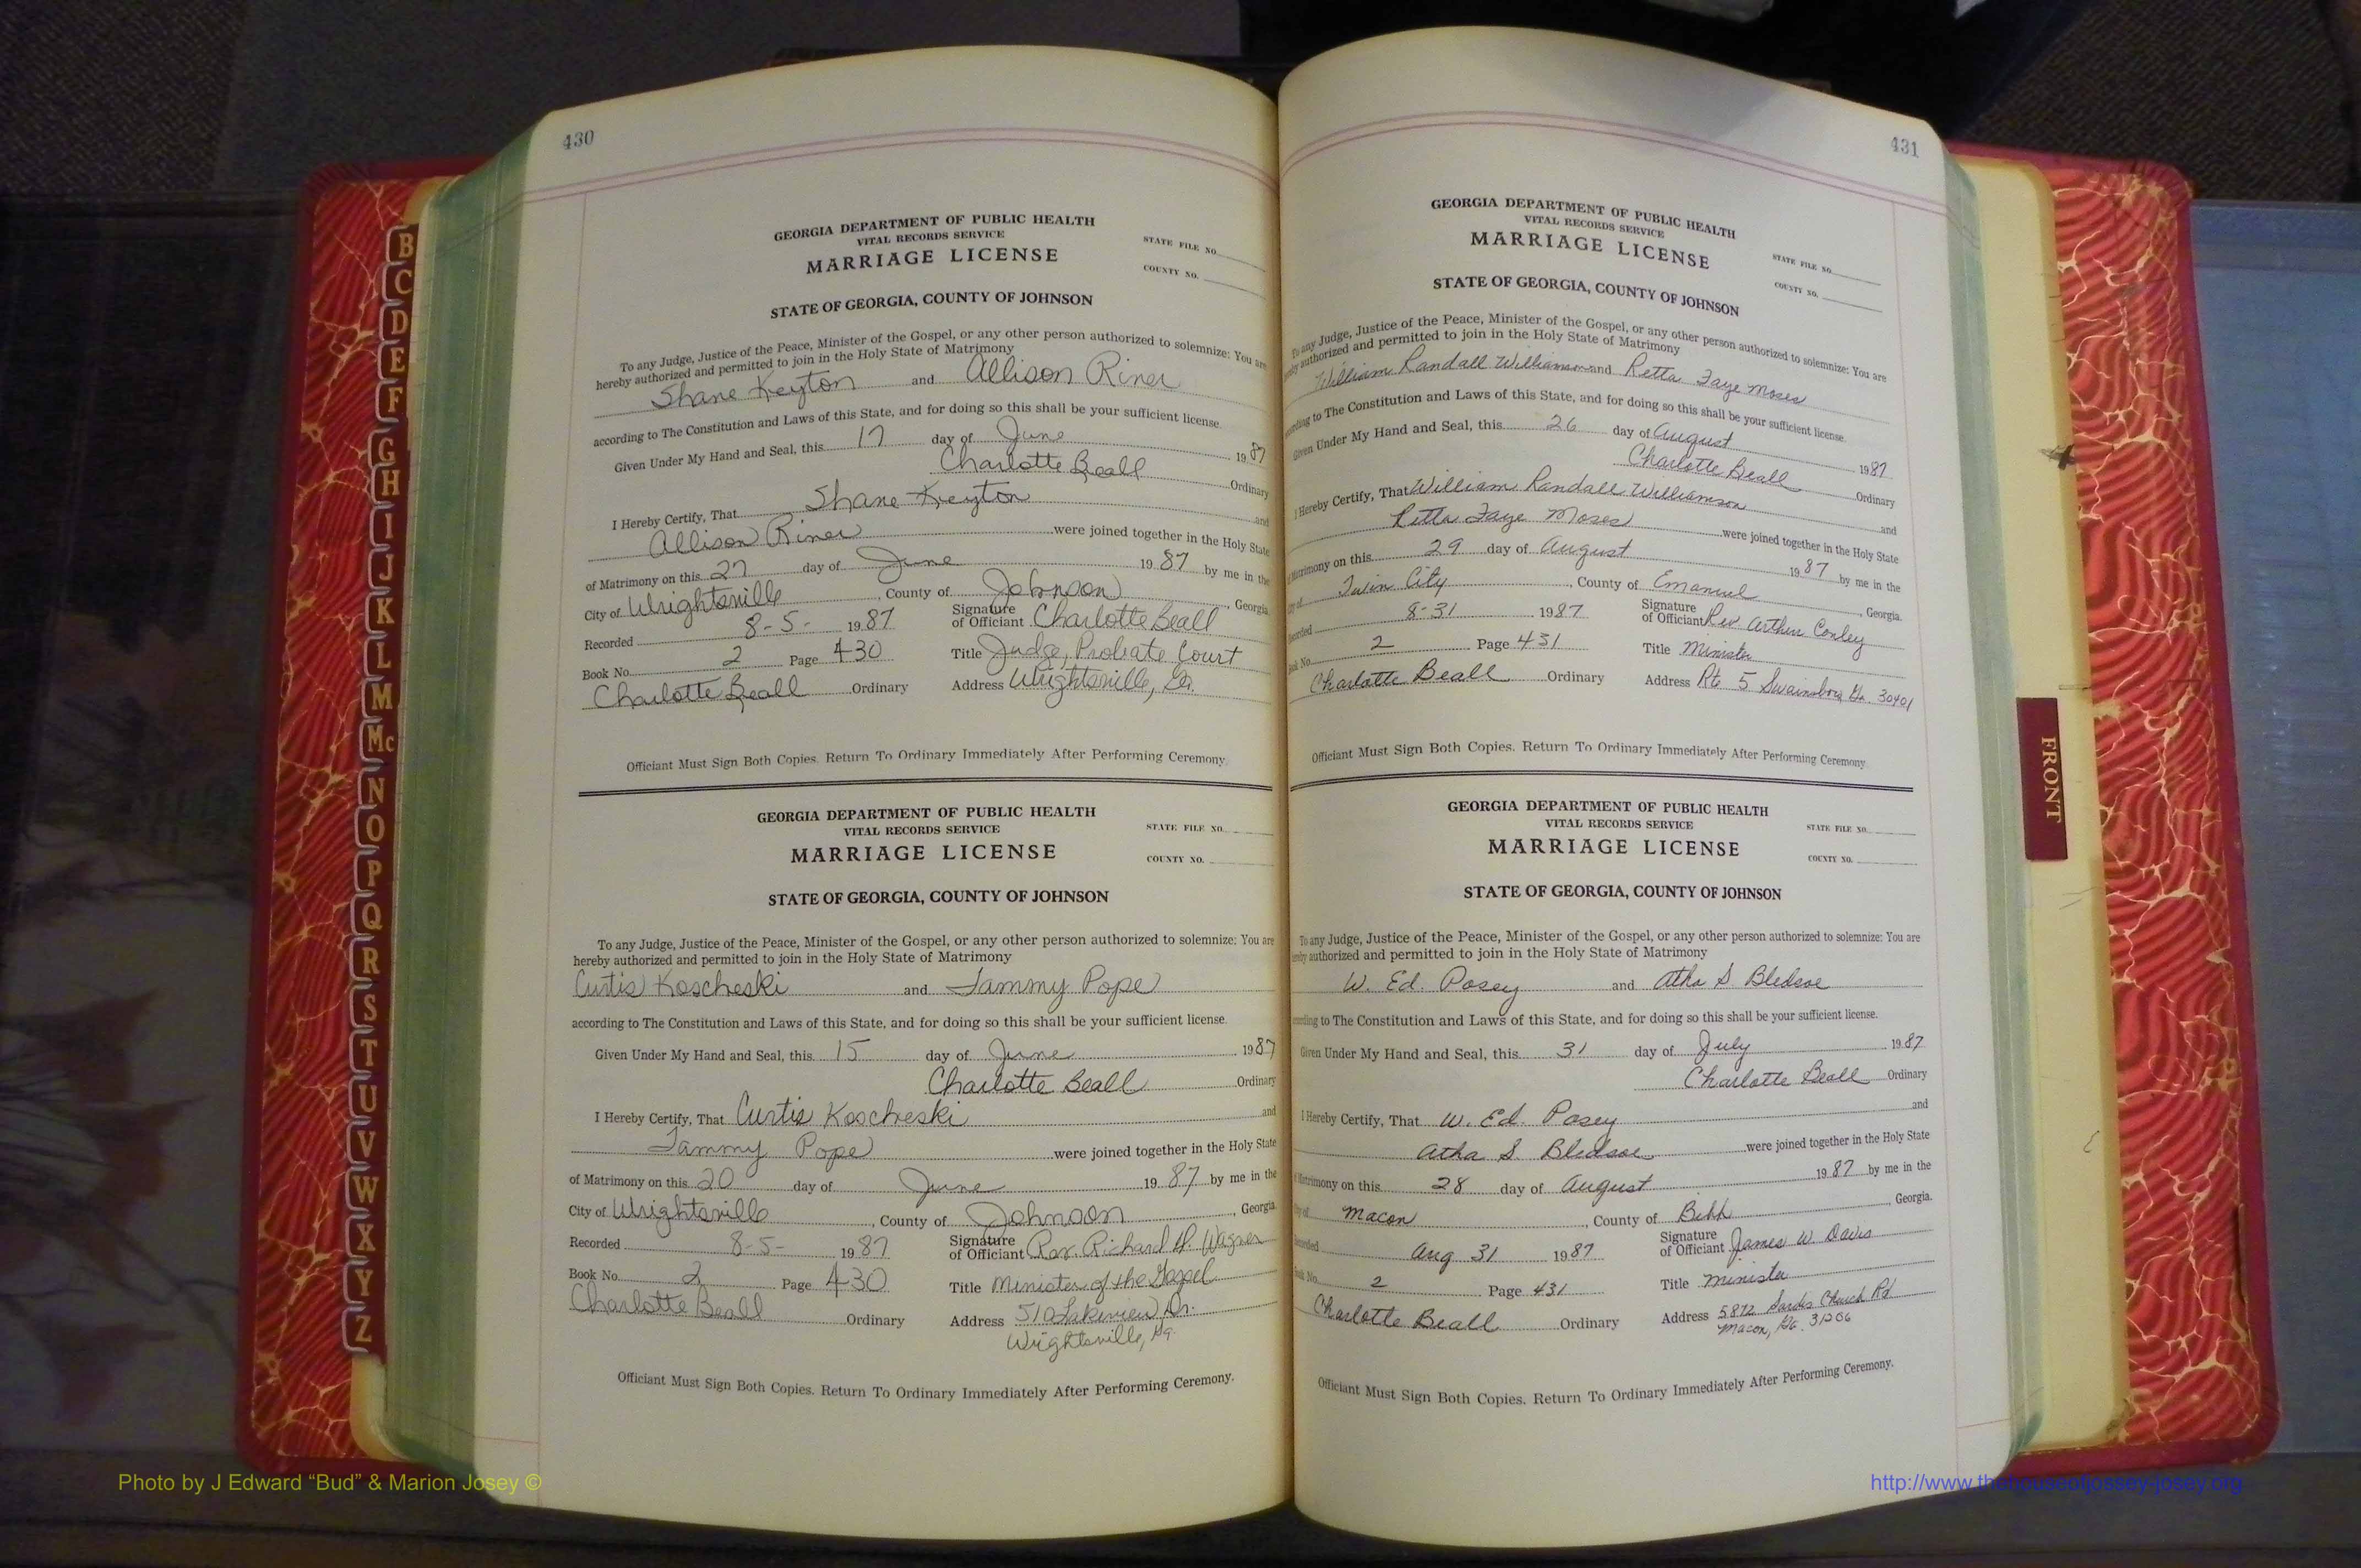 430
GEORGIA DEPARTMENT OF PUBLIC HEALTH
VITAL RECORDS SERVICE
MARRIAGE LICENSE
STATE FILE NO.
COUNTY NO.
STATE OF GEORGIA, COUNTY OF JOHNSON
To any Judge, Justice of the Peace, Minister of the Gospel, or any other person authorized to solemnize: You are
hereby authorized and permitted to join in the Holy State of Matrimony
Shane Keyton and Allison Riner
according to The Constitution and Laws of this State, and for doing so this shall be your sufficient license.
Given Under My Hand and Seal, this 17 day of June 1987
Charlotte Beall Ordinary
I Hereby Certify, That Shane Keyton and
Allison Riner were joined together in the Holy State
of Matrimony on this 27 day of June 1987 by me in the
City of Wrightsville, County of Johnson, Georgia
Recorded 8-5- 1987 Signature of Officiant Charlotte Beall
Book No. 2 Page 430 Title Judge, Probate Court
Charlotte Beall Ordinary Address Wrightsville, Ga.
Officiant Must Sign Both Copies. Return To Ordinary Immediately After Performing Ceremony.
GEORGIA DEPARTMENT OF PUBLIC HEALTH
VITAL RECORDS SERVICE
MARRIAGE LICENSE
STATE FILE NO.
COUNTY NO.
STATE OF GEORGIA, COUNTY OF JOHNSON
To any Judge, Justice of the Peace, Minister of the Gospel, or any other person authorized to solemnize: You are
hereby authorized and permitted to join in the Holy State of Matrimony
Curtis Koscheski and Tammy Pope
according to The Constitution and Laws of this State, and for doing so this shall be your sufficient license.
Given Under My Hand and Seal, this 15 day of June 1987
Charlotte Beall Ordinary
I Hereby Certify, That Curtis Koscheski and
Tammy Pope were joined together in the Holy State
of Matrimony on this 20 day of June 1987 by me in the
City of Wrightsville, County of Johnson, Georgia
Recorded 8-5- 1987 Signature of Officiant Rev. Richard H. Wagner
Book No. 2 Page 430 Title Minister of the Gospel
Charlotte Beall Ordinary Address 510 Lakeview Dr.
Wrightsville, Ga.
Officiant Must Sign Both Copies. Return To Ordinary Immediately After Performing Ceremony.
431
GEORGIA DEPARTMENT OF PUBLIC HEALTH
VITAL RECORDS SERVICE
MARRIAGE LICENSE
STATE FILE NO.
COUNTY NO.
STATE OF GEORGIA, COUNTY OF JOHNSON
To any Judge, Justice of the Peace, Minister of the Gospel, or any other person authorized to solemnize: You are
hereby authorized and permitted to join in the Holy State of Matrimony
William Randall Williamson and Retta Faye Moses
according to The Constitution and Laws of this State, and for doing so this shall be your sufficient license.
Given Under My Hand and Seal, this 26 day of August 1987
Charlotte Beall Ordinary
I Hereby Certify, That William Randall Williamson and
Retta Faye Moses were joined together in the Holy State
of Matrimony on this 29 day of August 1987 by me in the
City of Twin City, County of Emanuel, Georgia.
Recorded 8-31 1987 Signature of Officiant Rev. Arthur Conley
Book No. 2 Page 431 Title Minister
Charlotte Beall Ordinary Address Rt. 5 Swainsboro, Ga. 30401
Officiant Must Sign Both Copies. Return To Ordinary Immediately After Performing Ceremony.
GEORGIA DEPARTMENT OF PUBLIC HEALTH
VITAL RECORDS SERVICE
MARRIAGE LICENSE
STATE FILE NO.
COUNTY NO.
STATE OF GEORGIA, COUNTY OF JOHNSON
To any Judge, Justice of the Peace, Minister of the Gospel, or any other person authorized to solemnize: You are
hereby authorized and permitted to join in the Holy State of Matrimony
W. Ed. Posey and Atha S Bledsoe
according to The Constitution and Laws of this State, and for doing so this shall be your sufficient license.
Given Under My Hand and Seal, this 31 day of July 1987
Charlotte Beall Ordinary
I Hereby Certify, That W. Ed. Posey and
Atha S Bledsoe were joined together in the Holy State
of Matrimony on this 28 day of August 1987 by me in the
City of Macon, County of Bibb, Georgia.
Recorded Aug 31 1987 Signature of Officiant James W. Davis
Book No. 2 Page 431 Title Minister
Charlotte Beall Ordinary Address 5872 Sardis Church Rd
Macon, Ga. 31206
Officiant Must Sign Both Copies. Return To Ordinary Immediately After Performing Ceremony.
B
C
D
E
F
G
H
I
J
K
L
M
Mc
N
O
P
Q
R
S
T
U
V
W
X
Y
Z
FRONT
Photo by J Edward “Bud” & Marion Josey ©
http://www.thehouseofjossey-josey.org